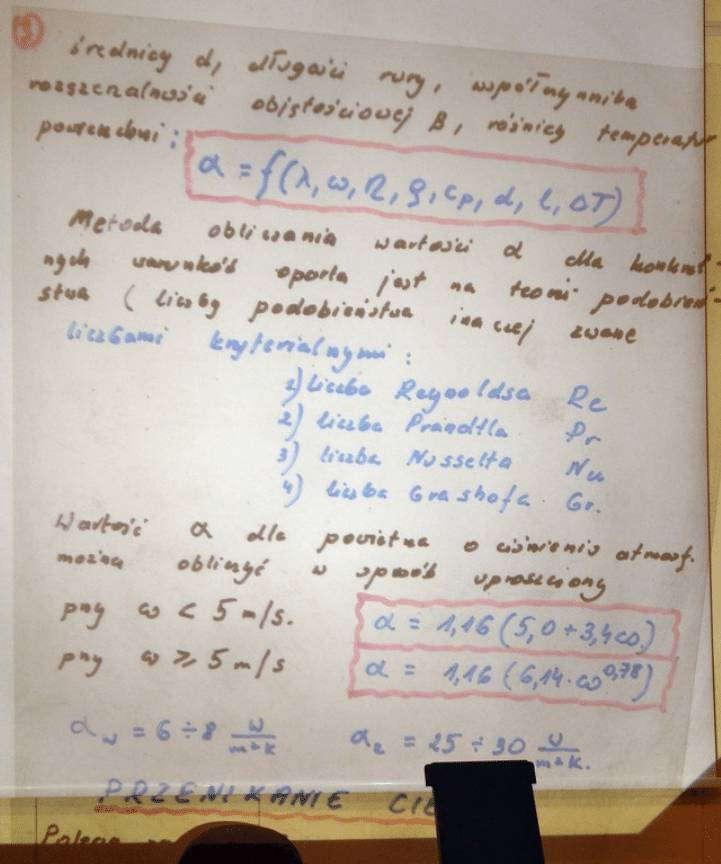 5)
średnicy d, długości rury, współczynnika
rozszerzalności objętościowej β, różnicy temperatur
powierzchni:
α = f(λ, ω, η, ρ, cp, d, l, ΔT)
Metoda obliczania wartości α dla konkret-
nych warunków oparta jest na teorii podobień-
stwa (liczby podobieństwa inaczej zwane
liczbami kryterialnymi:
1) liczba Reynoldsa Re
2) liczba Prandtla Pr
3) liczba Nusselta Nu
4) liczba Grashofa Gr.
Wartość α dla powietrza o ciśnieniu atmosf.
można obliczyć w sposób uproszczony
przy ω < 5 m/s. α = 1,16 (5,0 + 3,4ω)
przy ω ≥ 5 m/s α = 1,16 (6,14·ω^0,78)
αw = 6 ÷ 8 W/m²K αz = 25 ÷ 30 W/m²K.
PRZENIKANIE CIE
Polega